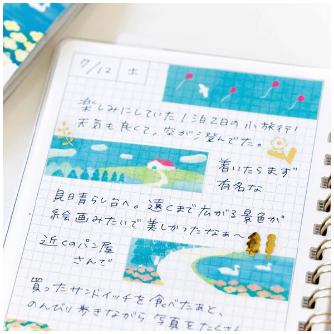 7/12 土
楽しみにしていた1泊2日の小旅行!
天気も良くて、空がご澄んでた。
着いたらまず
有名な
見晴らし台へ。遠くまで広がる景色が
絵画みたいで美しかったなぁ〜
近くのパン屋
さんで
買ったサンドイッチを食べたあと、
のんびり歩きながら写真をたくさん